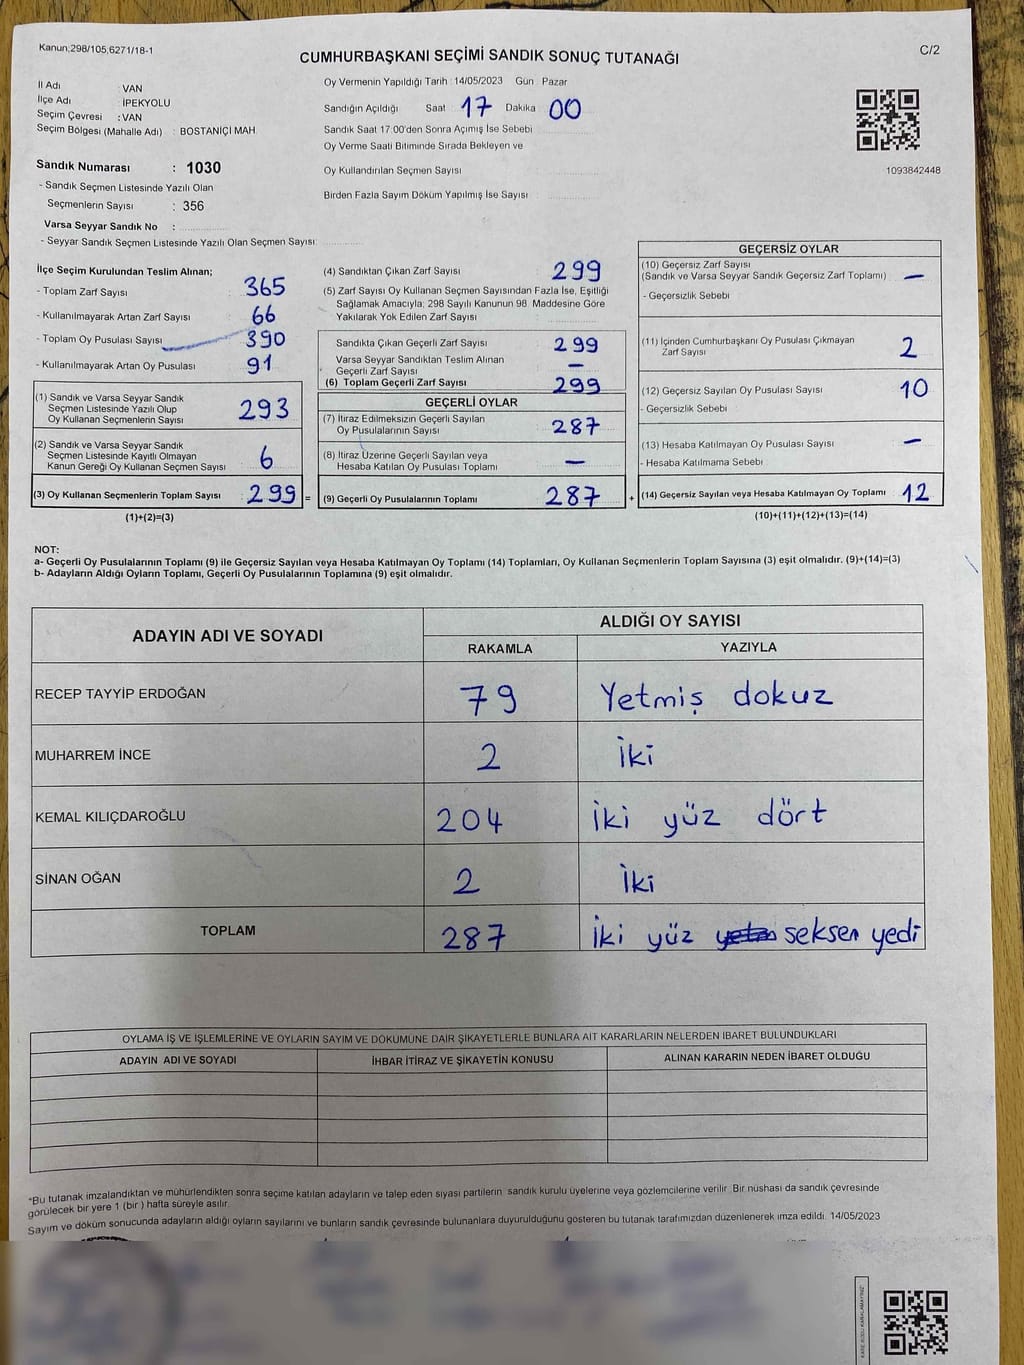 Kanun;298/105,6271/18-1
C/2
CUMHURBAŞKANI SEÇİMİ SANDIK SONUÇ TUTANAĞI
İl Adı VAN
İlçe Adı İPEKYOLU
Seçim Çevresi : VAN
Seçim Bölgesi (Mahalle Adı) : BOSTANİÇİ MAH.
Sandık Numarası : 1030
- Sandık Seçmen Listesinde Yazılı Olan
Seçmenlerin Sayısı : 356
Varsa Seyyar Sandık No :
- Seyyar Sandık Seçmen Listesinde Yazılı Olan Seçmen Sayısı:
Oy Vermenin Yapıldığı Tarih : 14/05/2023 Gün Pazar
Sandığın Açıldığı Saat 17 Dakika 00
Sandık Saat 17:00'den Sonra Açımış İse Sebebi
Oy Verme Saati Bitiminde Sırada Bekleyen ve
Oy Kullandırılan Seçmen Sayısı
Birden Fazla Sayım Döküm Yapılmış İse Sayısı
1093842448
İlçe Seçim Kurulundan Teslim Alınan;
- Toplam Zarf Sayısı 365
- Kullanılmayarak Artan Zarf Sayısı 66
- Toplam Oy Pusulası Sayısı 390
- Kullanılmayarak Artan Oy Pusulası 91
(1) Sandık ve Varsa Seyyar Sandık
Seçmen Listesinde Yazılı Olup
Oy Kullanan Seçmenlerin Sayısı 293
(2) Sandık ve Varsa Seyyar Sandık
Seçmen Listesinde Kayıtlı Olmayan
Kanun Gereği Oy Kullanan Seçmen Sayısı 6
(3) Oy Kullanan Seçmenlerin Toplam Sayısı : 299 =
(1)+(2)=(3)
(4) Sandıktan Çıkan Zarf Sayısı 299
(5) Zarf Sayısı Oy Kullanan Seçmen Sayısından Fazla İse, Eşitliği
Sağlamak Amacıyla; 298 Sayılı Kanunun 98. Maddesine Göre
Yakılarak Yok Edilen Zarf Sayısı
Sandıkta Çıkan Geçerli Zarf Sayısı 299
Varsa Seyyar Sandıktan Teslim Alınan
Geçerli Zarf Sayısı —
(6) Toplam Geçerli Zarf Sayısı 299
GEÇERLİ OYLAR
(7) İtiraz Edilmeksizin Geçerli Sayılan
Oy Pusulalarının Sayısı 287
(8) İtiraz Üzerine Geçerli Sayılan veya
Hesaba Katılan Oy Pusulası Toplamı —
(9) Geçerli Oy Pusulalarının Toplamı 287 +
GEÇERSİZ OYLAR
(10) Geçersiz Zarf Sayısı
(Sandık ve Varsa Seyyar Sandık Geçersiz Zarf Toplamı) —
- Geçersizlik Sebebi
(11) İçinden Cumhurbaşkanı Oy Pusulası Çıkmayan
Zarf Sayısı 2
(12) Geçersiz Sayılan Oy Pusulası Sayısı 10
- Geçersizlik Sebebi
(13) Hesaba Katılmayan Oy Pusulası Sayısı —
- Hesaba Katılmama Sebebi
(14) Geçersiz Sayılan veya Hesaba Katılmayan Oy Toplamı 12
(10)+(11)+(12)+(13)=(14)
NOT:
a- Geçerli Oy Pusulalarının Toplamı (9) ile Geçersiz Sayılan veya Hesaba Katılmayan Oy Toplamı (14) Toplamları, Oy Kullanan Seçmenlerin Toplam Sayısına (3) eşit olmalıdır. (9)+(14)=(3)
b- Adayların Aldığı Oyların Toplamı, Geçerli Oy Pusulalarının Toplamına (9) eşit olmalıdır.
ADAYIN ADI VE SOYADI ALDIĞI OY SAYISI
RAKAMLA YAZIYLA
RECEP TAYYİP ERDOĞAN 79 Yetmiş dokuz
MUHARREM İNCE 2 İki
KEMAL KILIÇDAROĞLU 204 İki yüz dört
SİNAN OĞAN 2 İki
TOPLAM 287 İki yüz seksen yedi
OYLAMA İŞ VE İŞLEMLERİNE VE OYLARIN SAYIM VE DÖKÜMÜNE DAİR ŞİKAYETLERLE BUNLARA AİT KARARLARIN NELERDEN İBARET BULUNDUKLARI
ADAYIN ADI VE SOYADI İHBAR İTİRAZ VE ŞİKAYETİN KONUSU ALINAN KARARIN NEDEN İBARET OLDUĞU
*Bu tutanak imzalandıktan ve mühürlendikten sonra seçime katılan adayların ve talep eden siyasi partilerin sandık kurulu üyelerine veya gözlemcilerine verilir. Bir nüshası da sandık çevresinde
görülecek bir yere 1 (bir) hafta süreyle asılır.
Sayım ve döküm sonucunda adayların aldığı oyların sayılarını ve bunların sandık çevresinde bulunanlara duyurulduğunu gösteren bu tutanak tarafımızdan düzenlenerek imza edildi. 14/05/2023